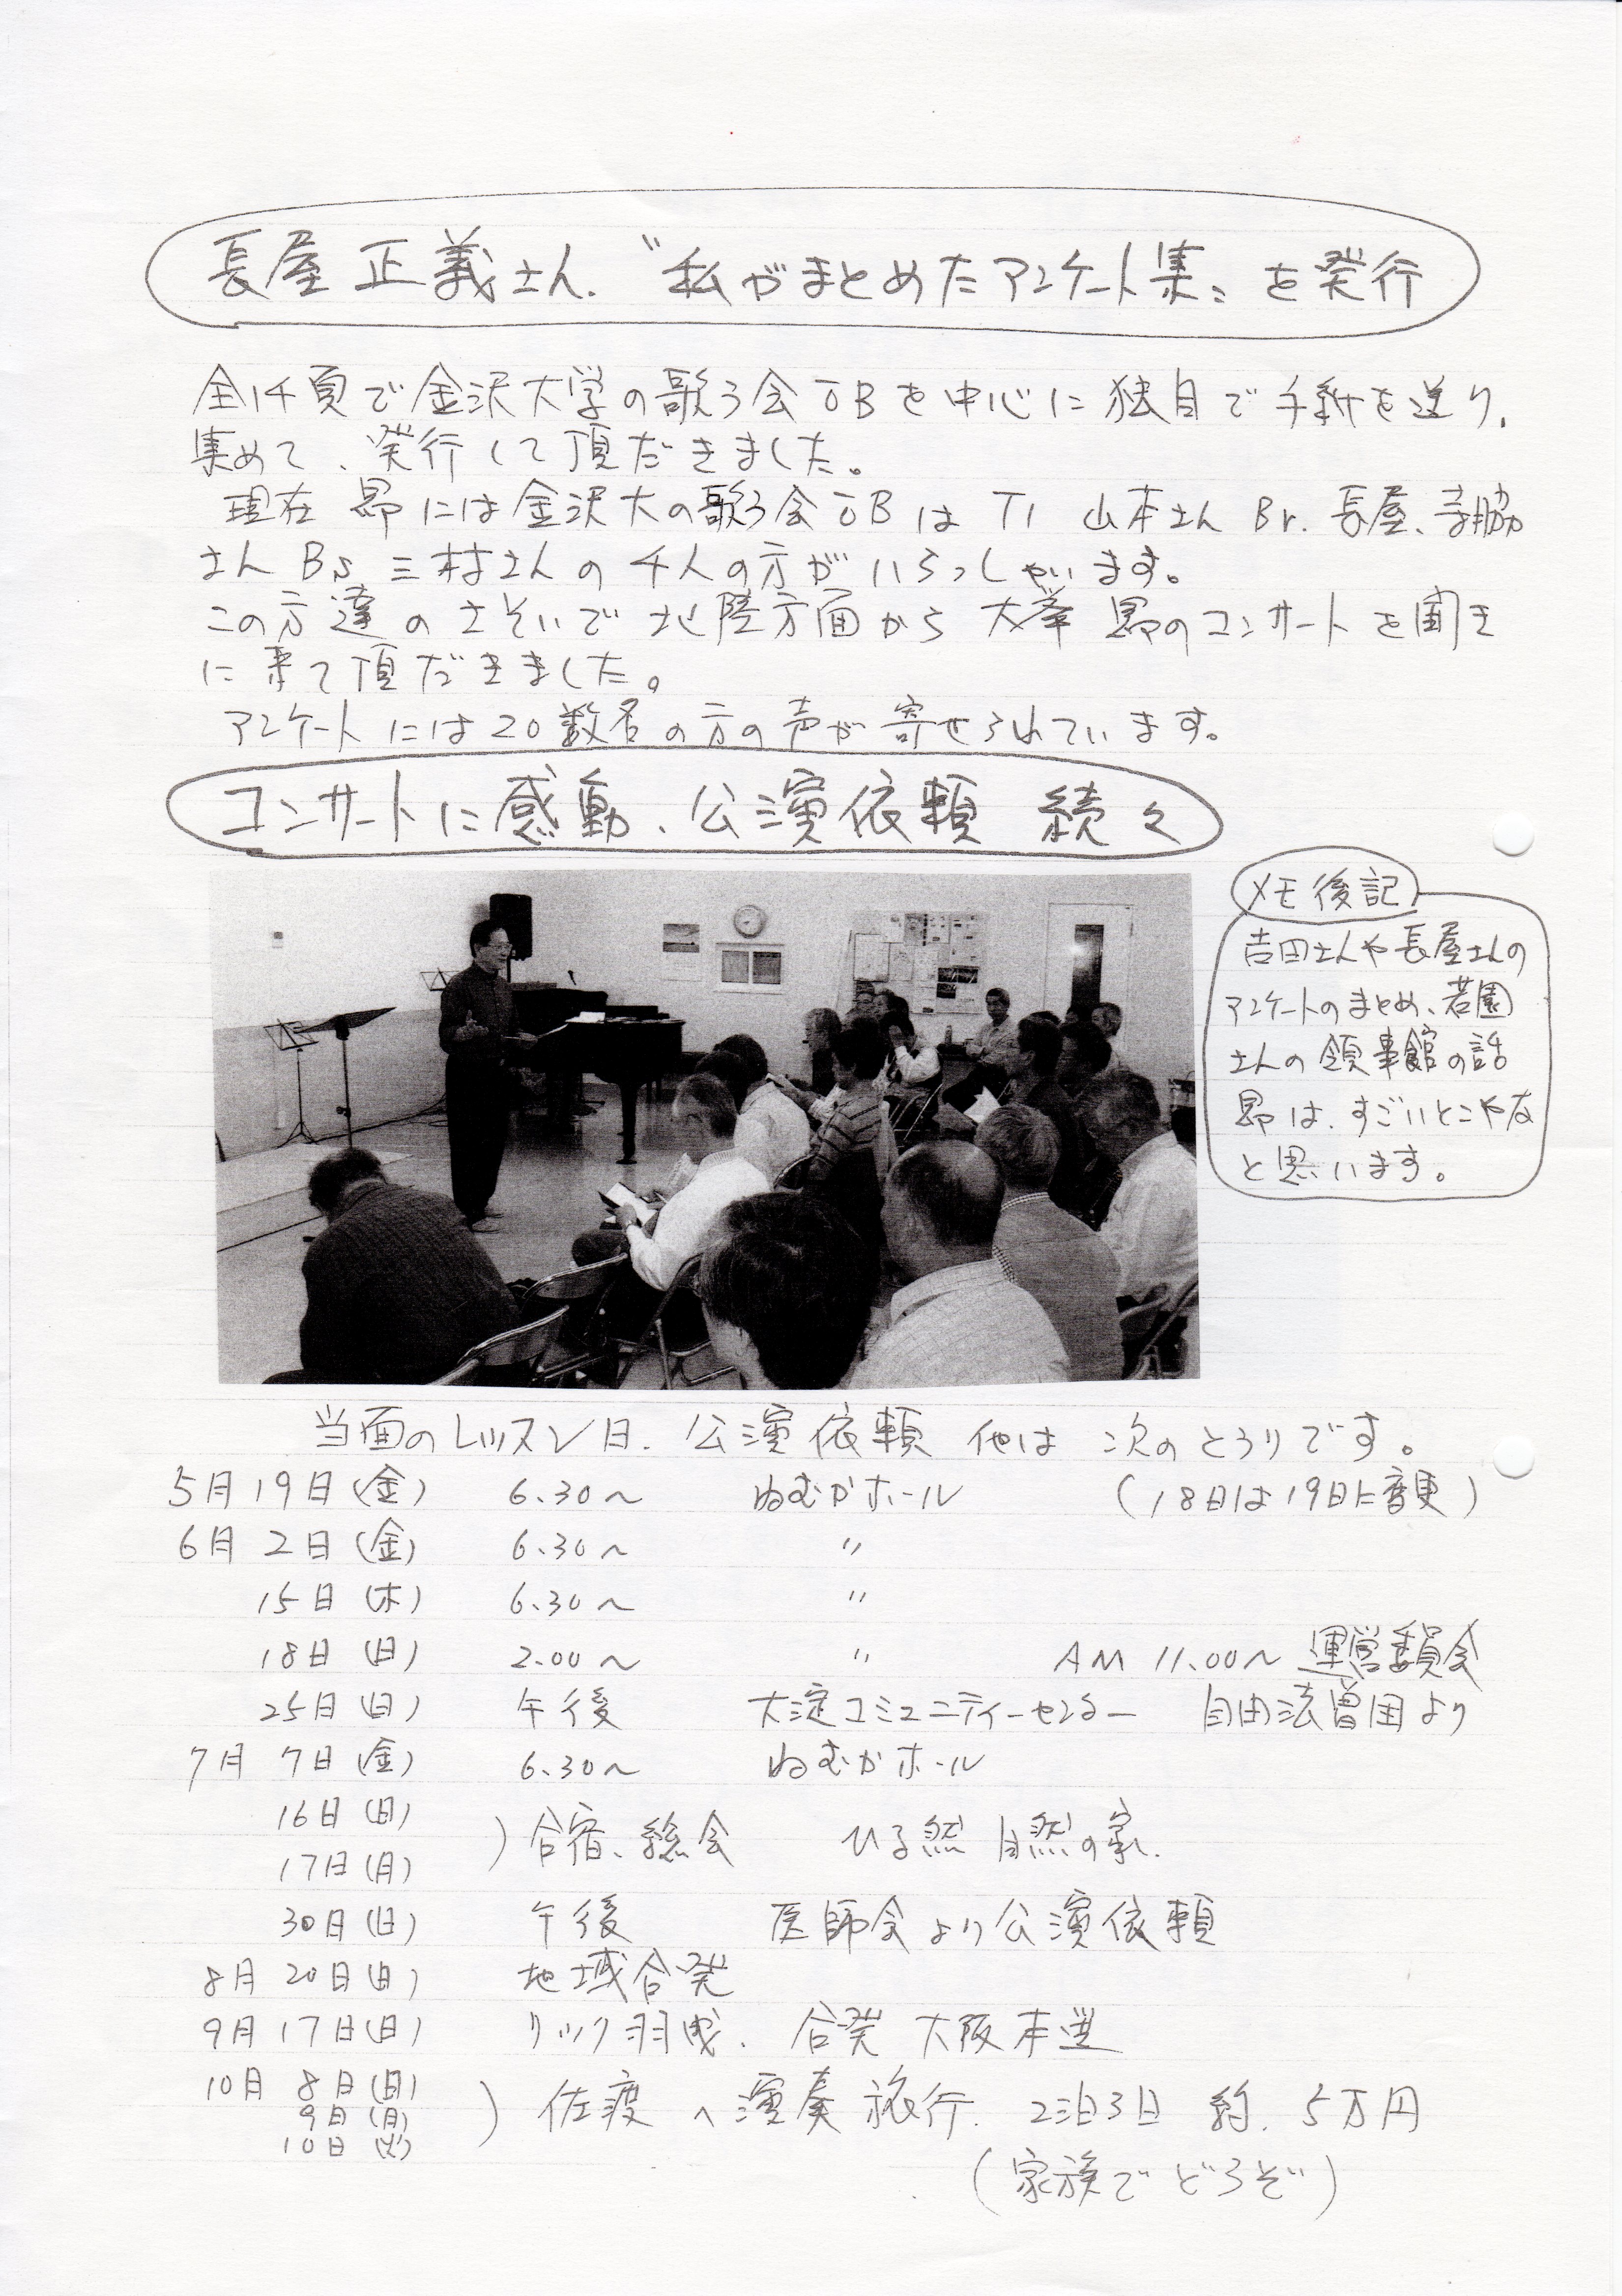 長屋正義さん、〝私がまとめたアンケート集〟を発行
全14頁で金沢大学の歌う会OBを中心に独自で手紙を送り、
集めて、発行して頂だきました。
現在 昴には金沢大の歌う会OBは T1 山本さん Br. 長屋、寺脇
さん Bs 三村さんの4人の方がいらっしゃいます。
この方達のさそいで北陸方面から大挙 昴のコンサートを聞き
に来て頂だきました。
アンケートには20数名の方の声が寄せられています。
コンサートに感動、公演依頼 続々
メモ後記
吉田さんや長屋さんの
アンケートのまとめ、若園
さんの領事館の話
昴は、すごいとこやな
と思います。
当面のレッスン日、公演依頼 他は 次のとうりです。
5月19日(金) 6.30〜 ねむかホール (18日は19日に変更)
6月 2日(金) 6.30〜 〃
15日(木) 6.30〜 〃
18日(日) 2.00〜 〃 AM 11.00〜 運営委員会
25日(日) 午後 大淀コミュニティーセンター 自由法曹団より
7月 7日(金) 6.30〜 ねむかホール
16日(日)
17日(月) ) 合宿、総会 ひる然 自然の家
30日(日) 午後 医師会より公演依頼
8月 20日(日) 地域合発
9月 17日(日) リック羽曳. 合発 大阪本選
10月 8日(日)
9日(月) ) 佐渡へ演奏旅行. 2泊3日 約. 5万円
10日(火)
(家族でどうぞ)